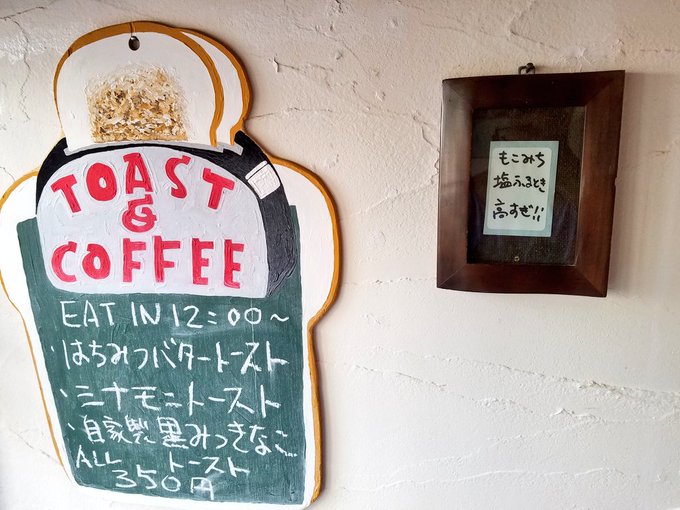 TOAST
&
COFFEE
EAT IN 12:00〜
・はちみつバタートースト
・シナモントースト
・自家製黒みつきなこ
トースト
ALL 350円
もこみち
塩ふるとき
高すぎ!!